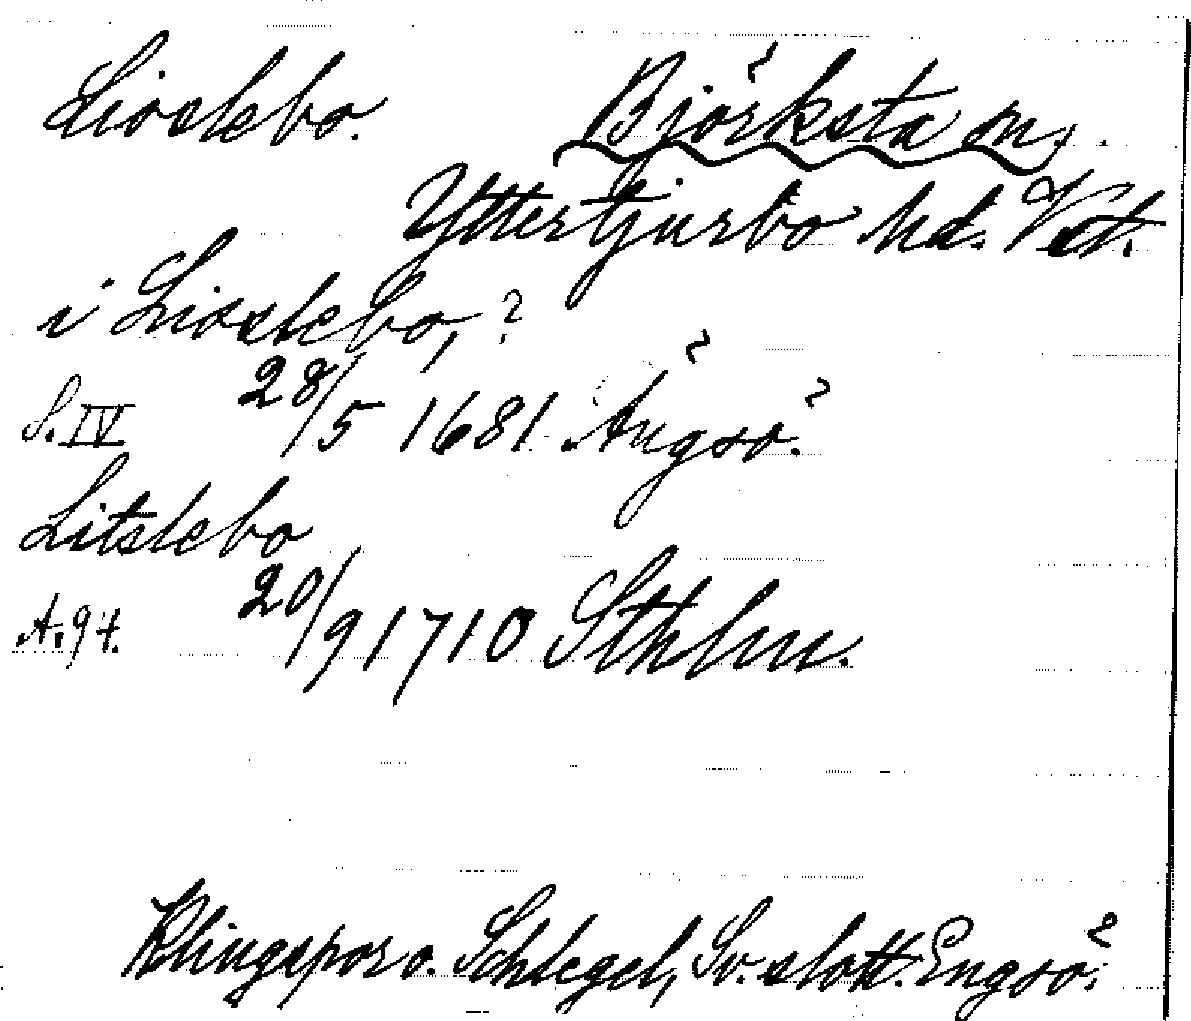 Lioslebo. Björksta sn.
Yttertjurbo hd. Vst.
i Lioslebo, ?
S. IV 28/5 1681 Ängsö.
Litslebo
A. 94. 20/9 1710 Sthlm.
Klingspor o. Schlegel, Sv. slott. Engsö.